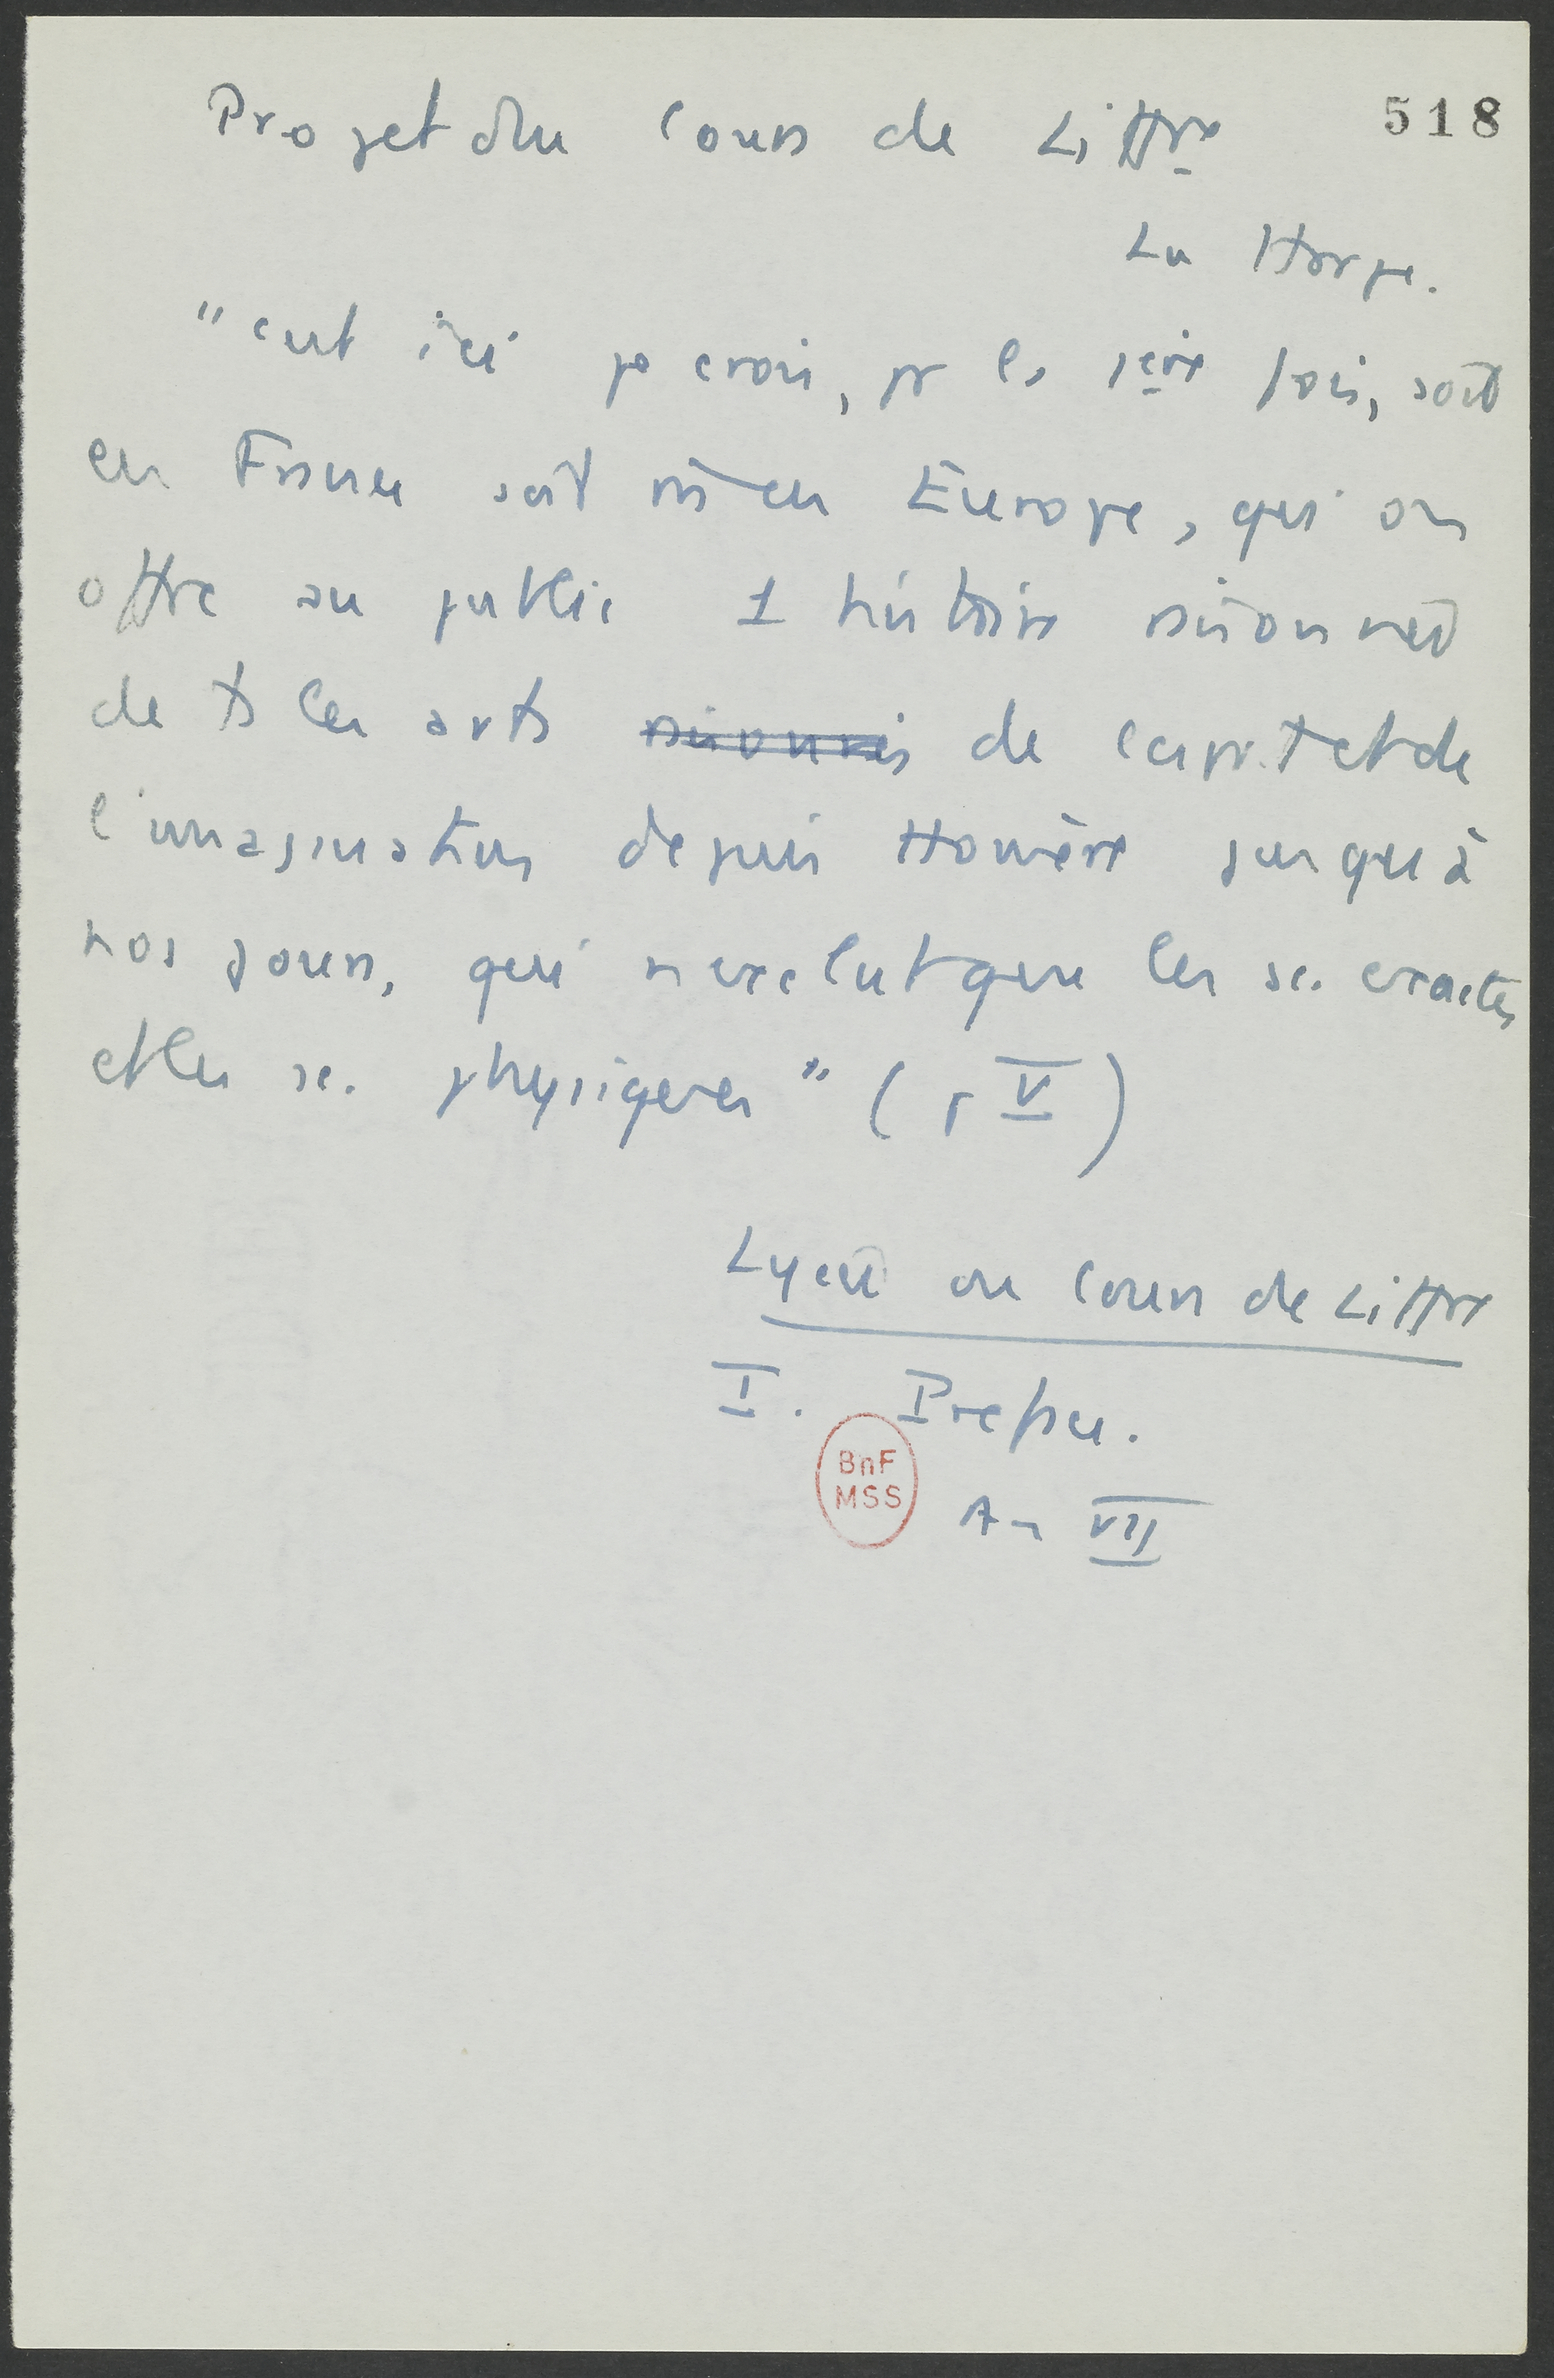 518
Projet du Cours de Littre
La Harpe.
"c'est ici je crois, pr la 1ère fois, soit
en France soit m̄ en Europe, qu'on
offre au public 1 histoire raisonnée
de ts les arts raisonnés de l'esprit et de
l'imagination depuis Homère jusqu'à
nos jours, qui n'exclut que les sc. exactes
et les sc. physiques" (p V)
Lycée ou Cours de Littre
I. Préface.
BnF
MSS
An VII